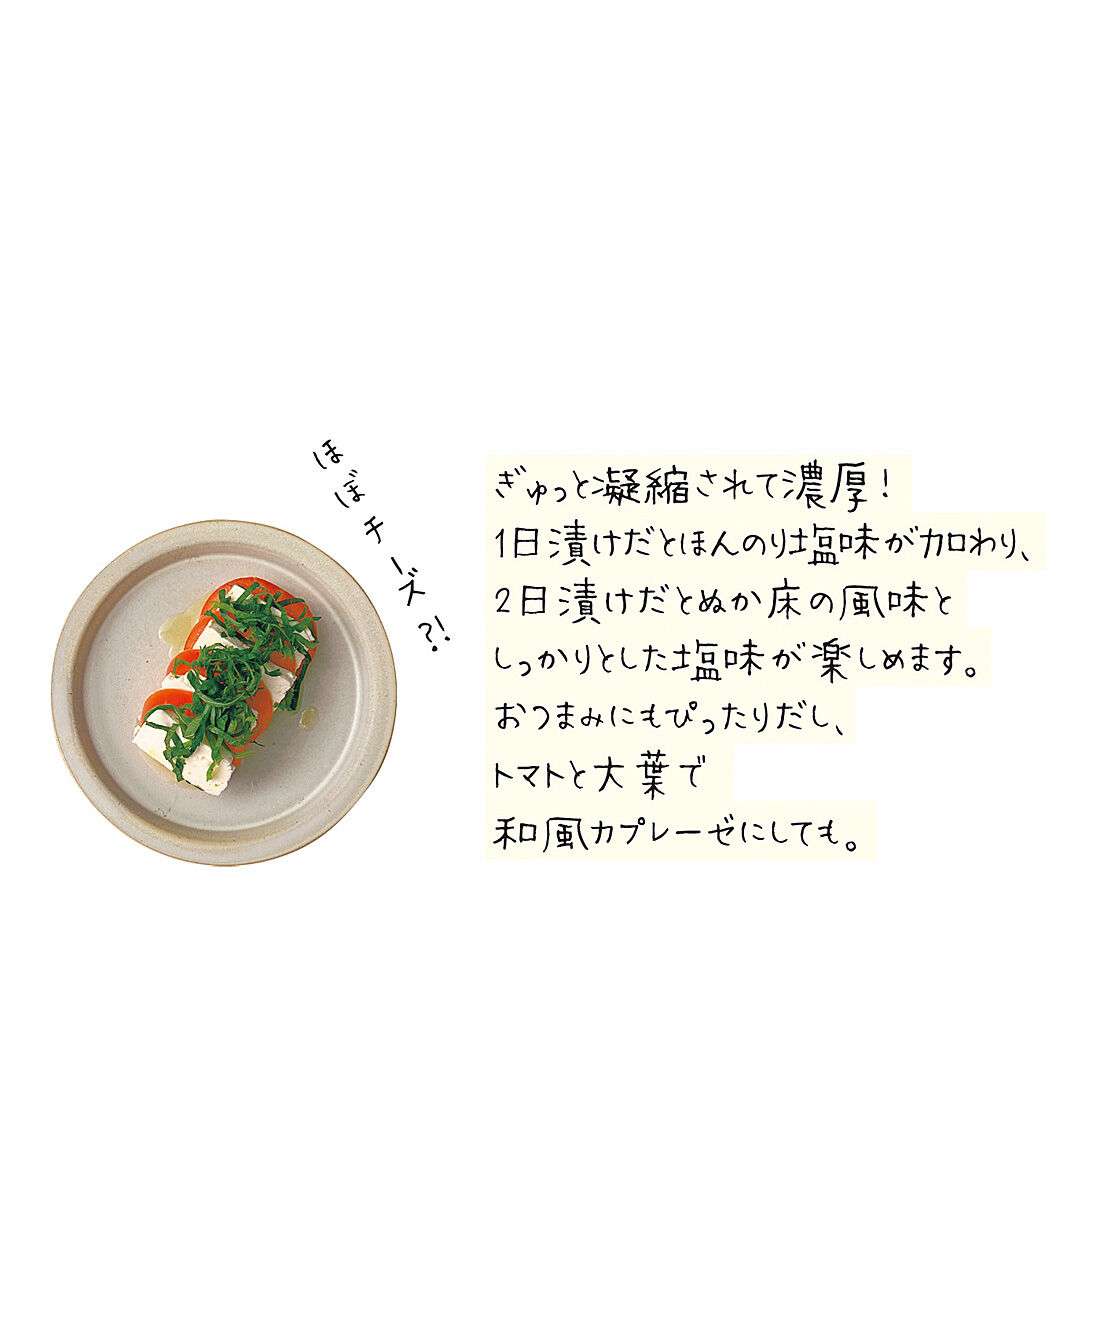 ほぼチーズ?!
ぎゅっと凝縮されて濃厚!
1日漬けだとほんのり塩味が加わり、
2日漬けだとぬか床の風味と
しっかりとした塩味が楽しめます。
おつまみにもぴったりだし、
トマトと大葉で
和風カプレーゼにしても。